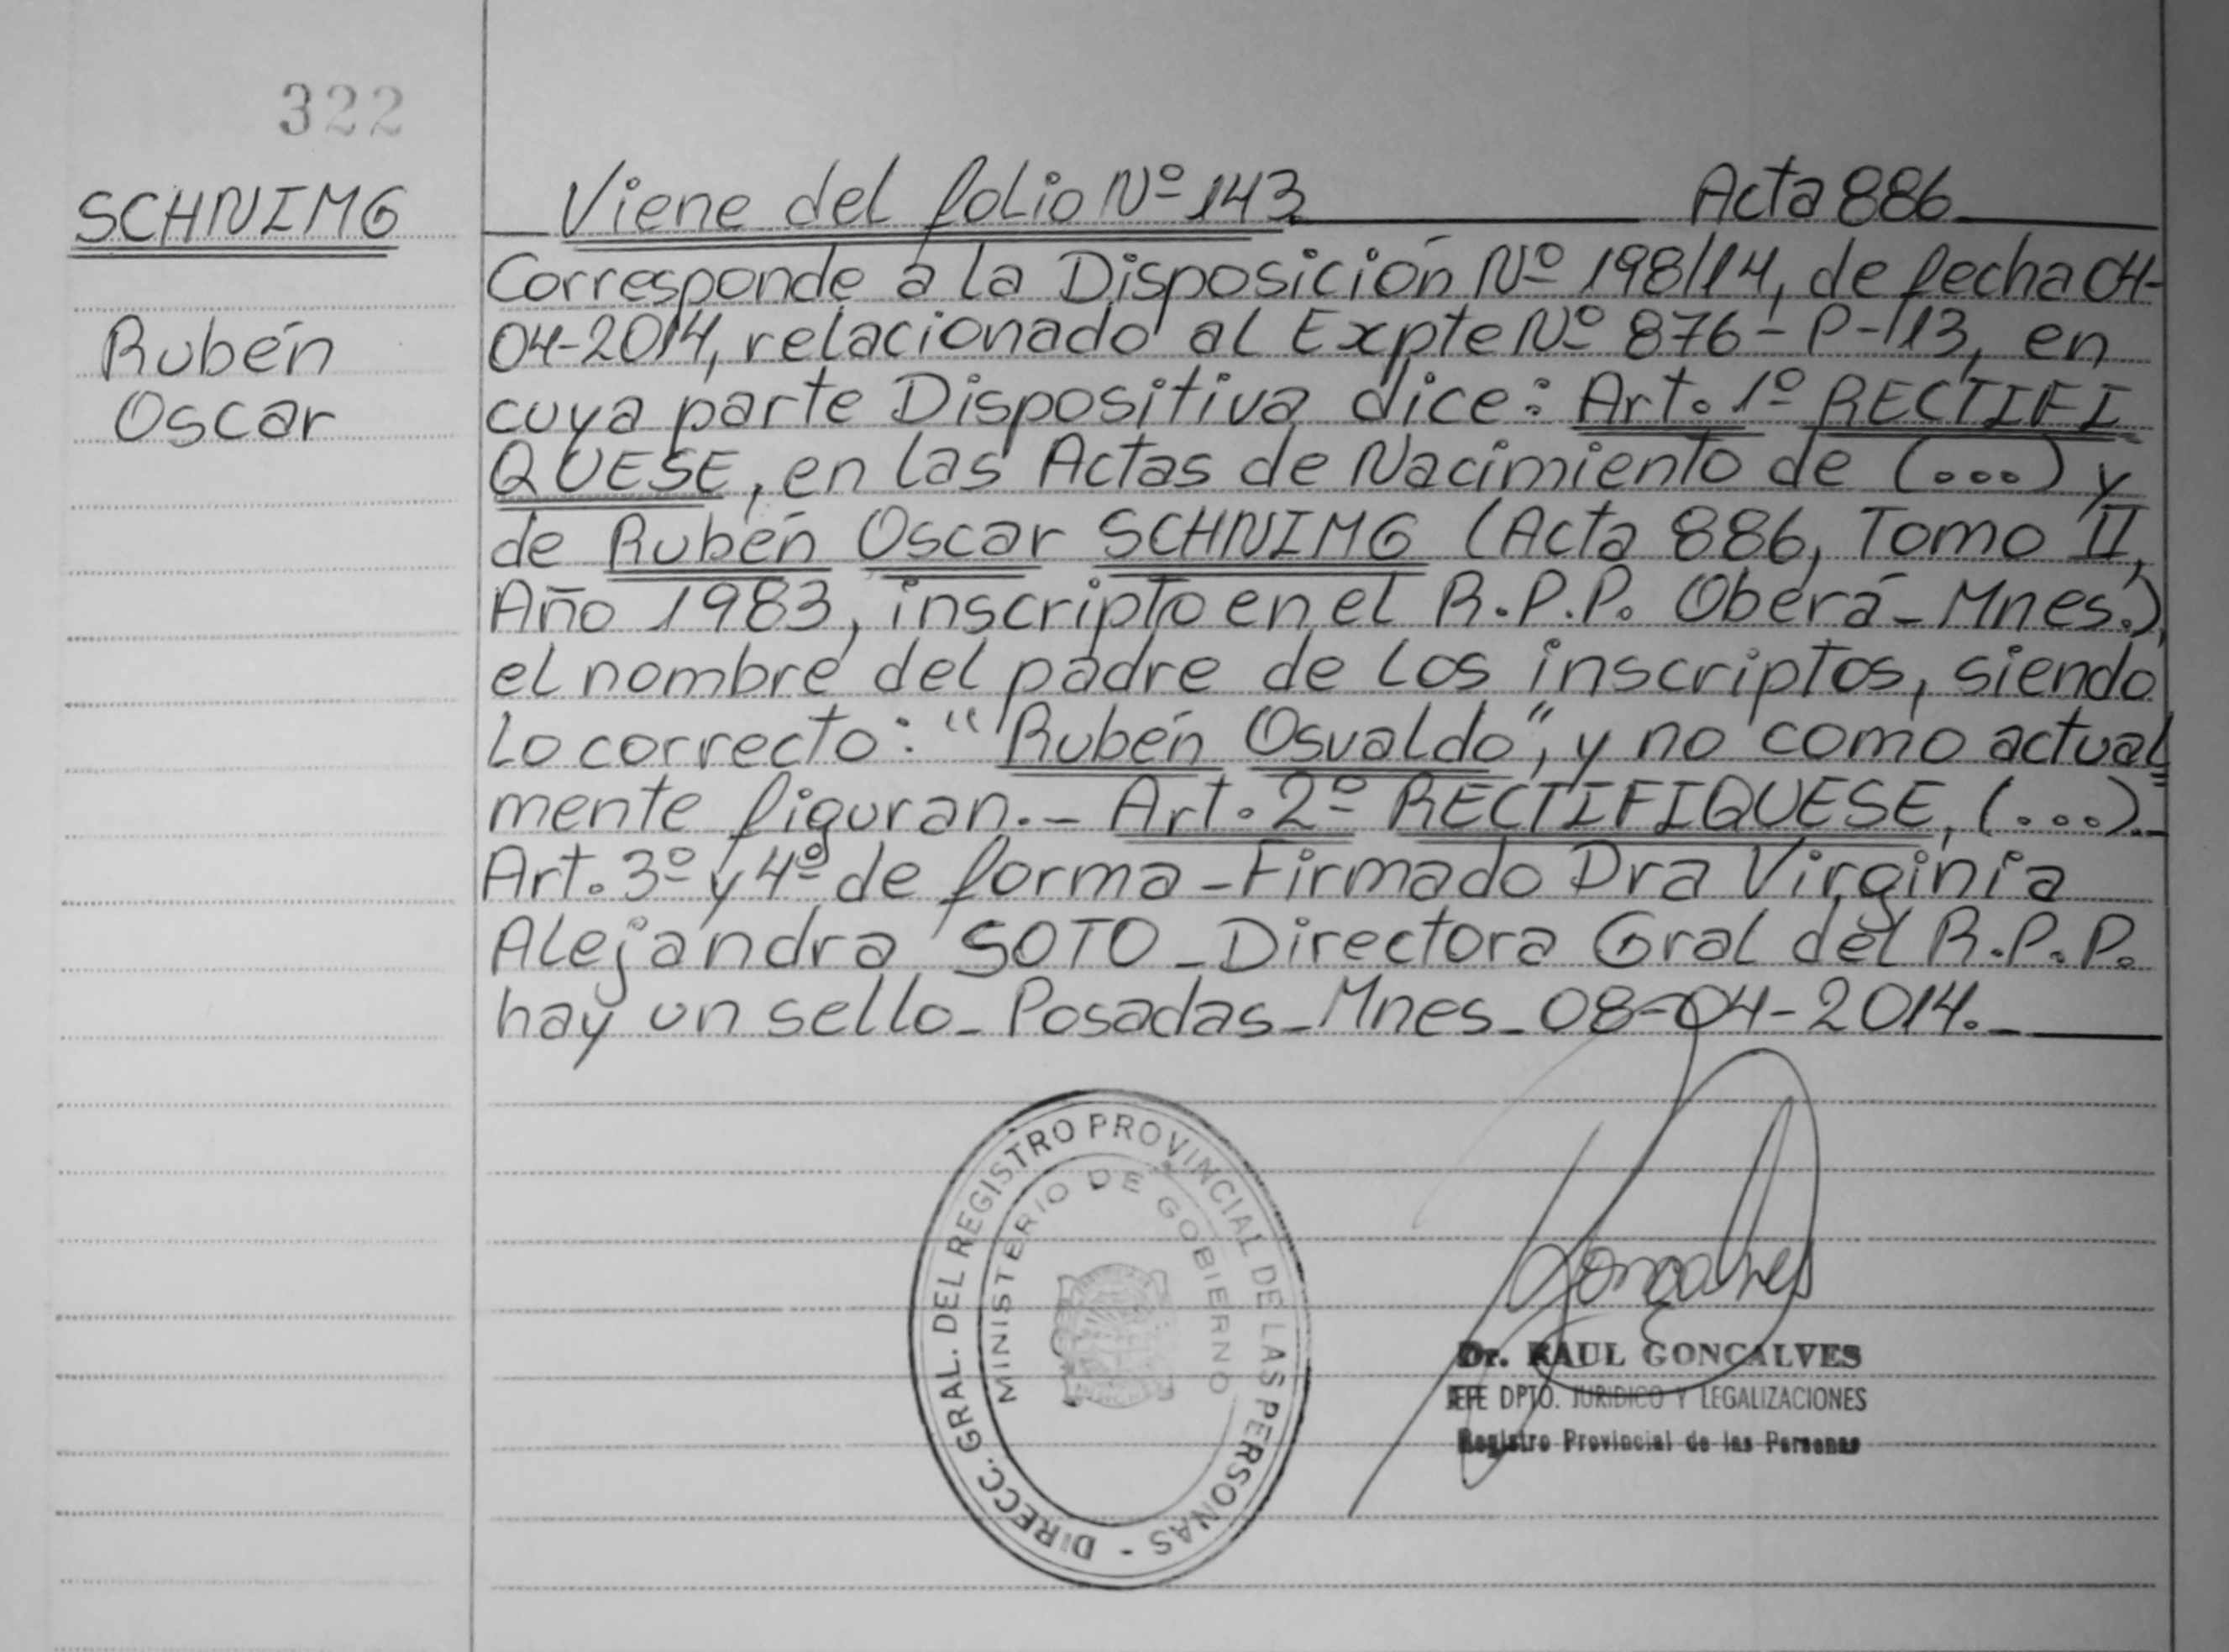 322
SCHNIMG
Rubén
Oscar
Viene del folio Nº 143 Acta 886
Corresponde a la Disposición Nº 198/14, de fecha 04-
04-2014, relacionado al Expte Nº 876-P-113, en
cuya parte Dispositiva dice: Art. 1º RECTIFI
QUESE, en las Actas de Nacimiento de (...) y
de Rubén Oscar SCHNIMG (Acta 886, Tomo II,
Año 1983, inscripto en el R.P.P. Oberá-Mnes.),
el nombre del padre de los inscriptos, siendo
lo correcto: "Rubén Osvaldo", y no como actual
mente figuran.- Art. 2º RECTIFIQUESE, (...)-
Art. 3º y 4º de forma - Firmado Dra Virginia
Alejandra SOTO - Directora Gral del R.P.P.
hay un sello - Posadas - Mnes - 08-04-2014.-
DIRECC. GRAL. DEL REGISTRO PROVINCIAL DE LAS PERSONAS -
MINISTERIO DE GOBIERNO
Goncalves
Dr. RAUL GONCALVES
JEFE DPTO. JURIDICO Y LEGALIZACIONES
Registro Provincial de las Personas